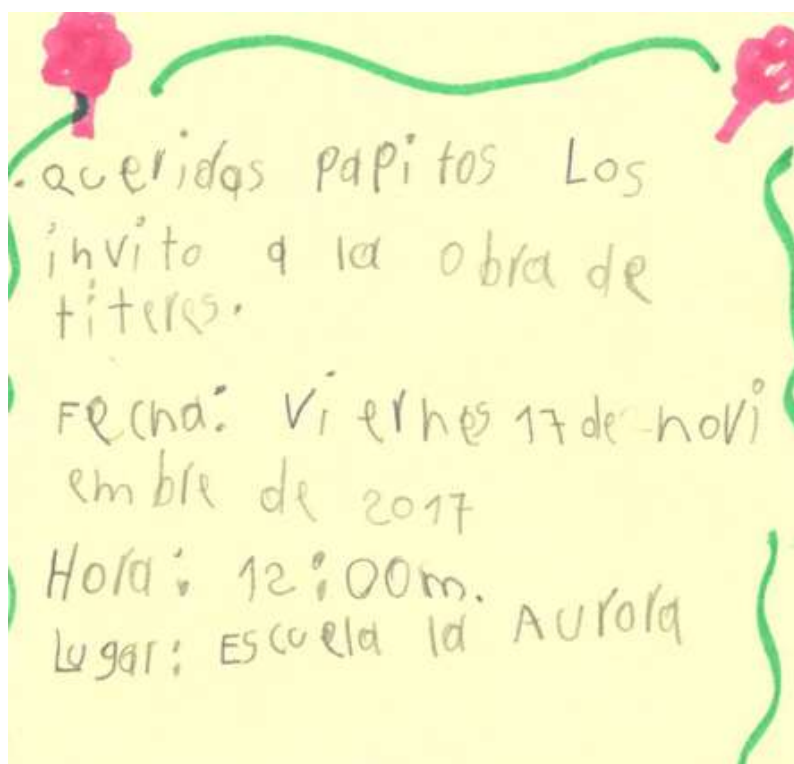 .queridos papitos Los
invito a la obra de
títeres.
Fecha: Viernes 17 de novi
embre de 2017
Hora: 12:00m.
Lugar: Escuela la Aurora